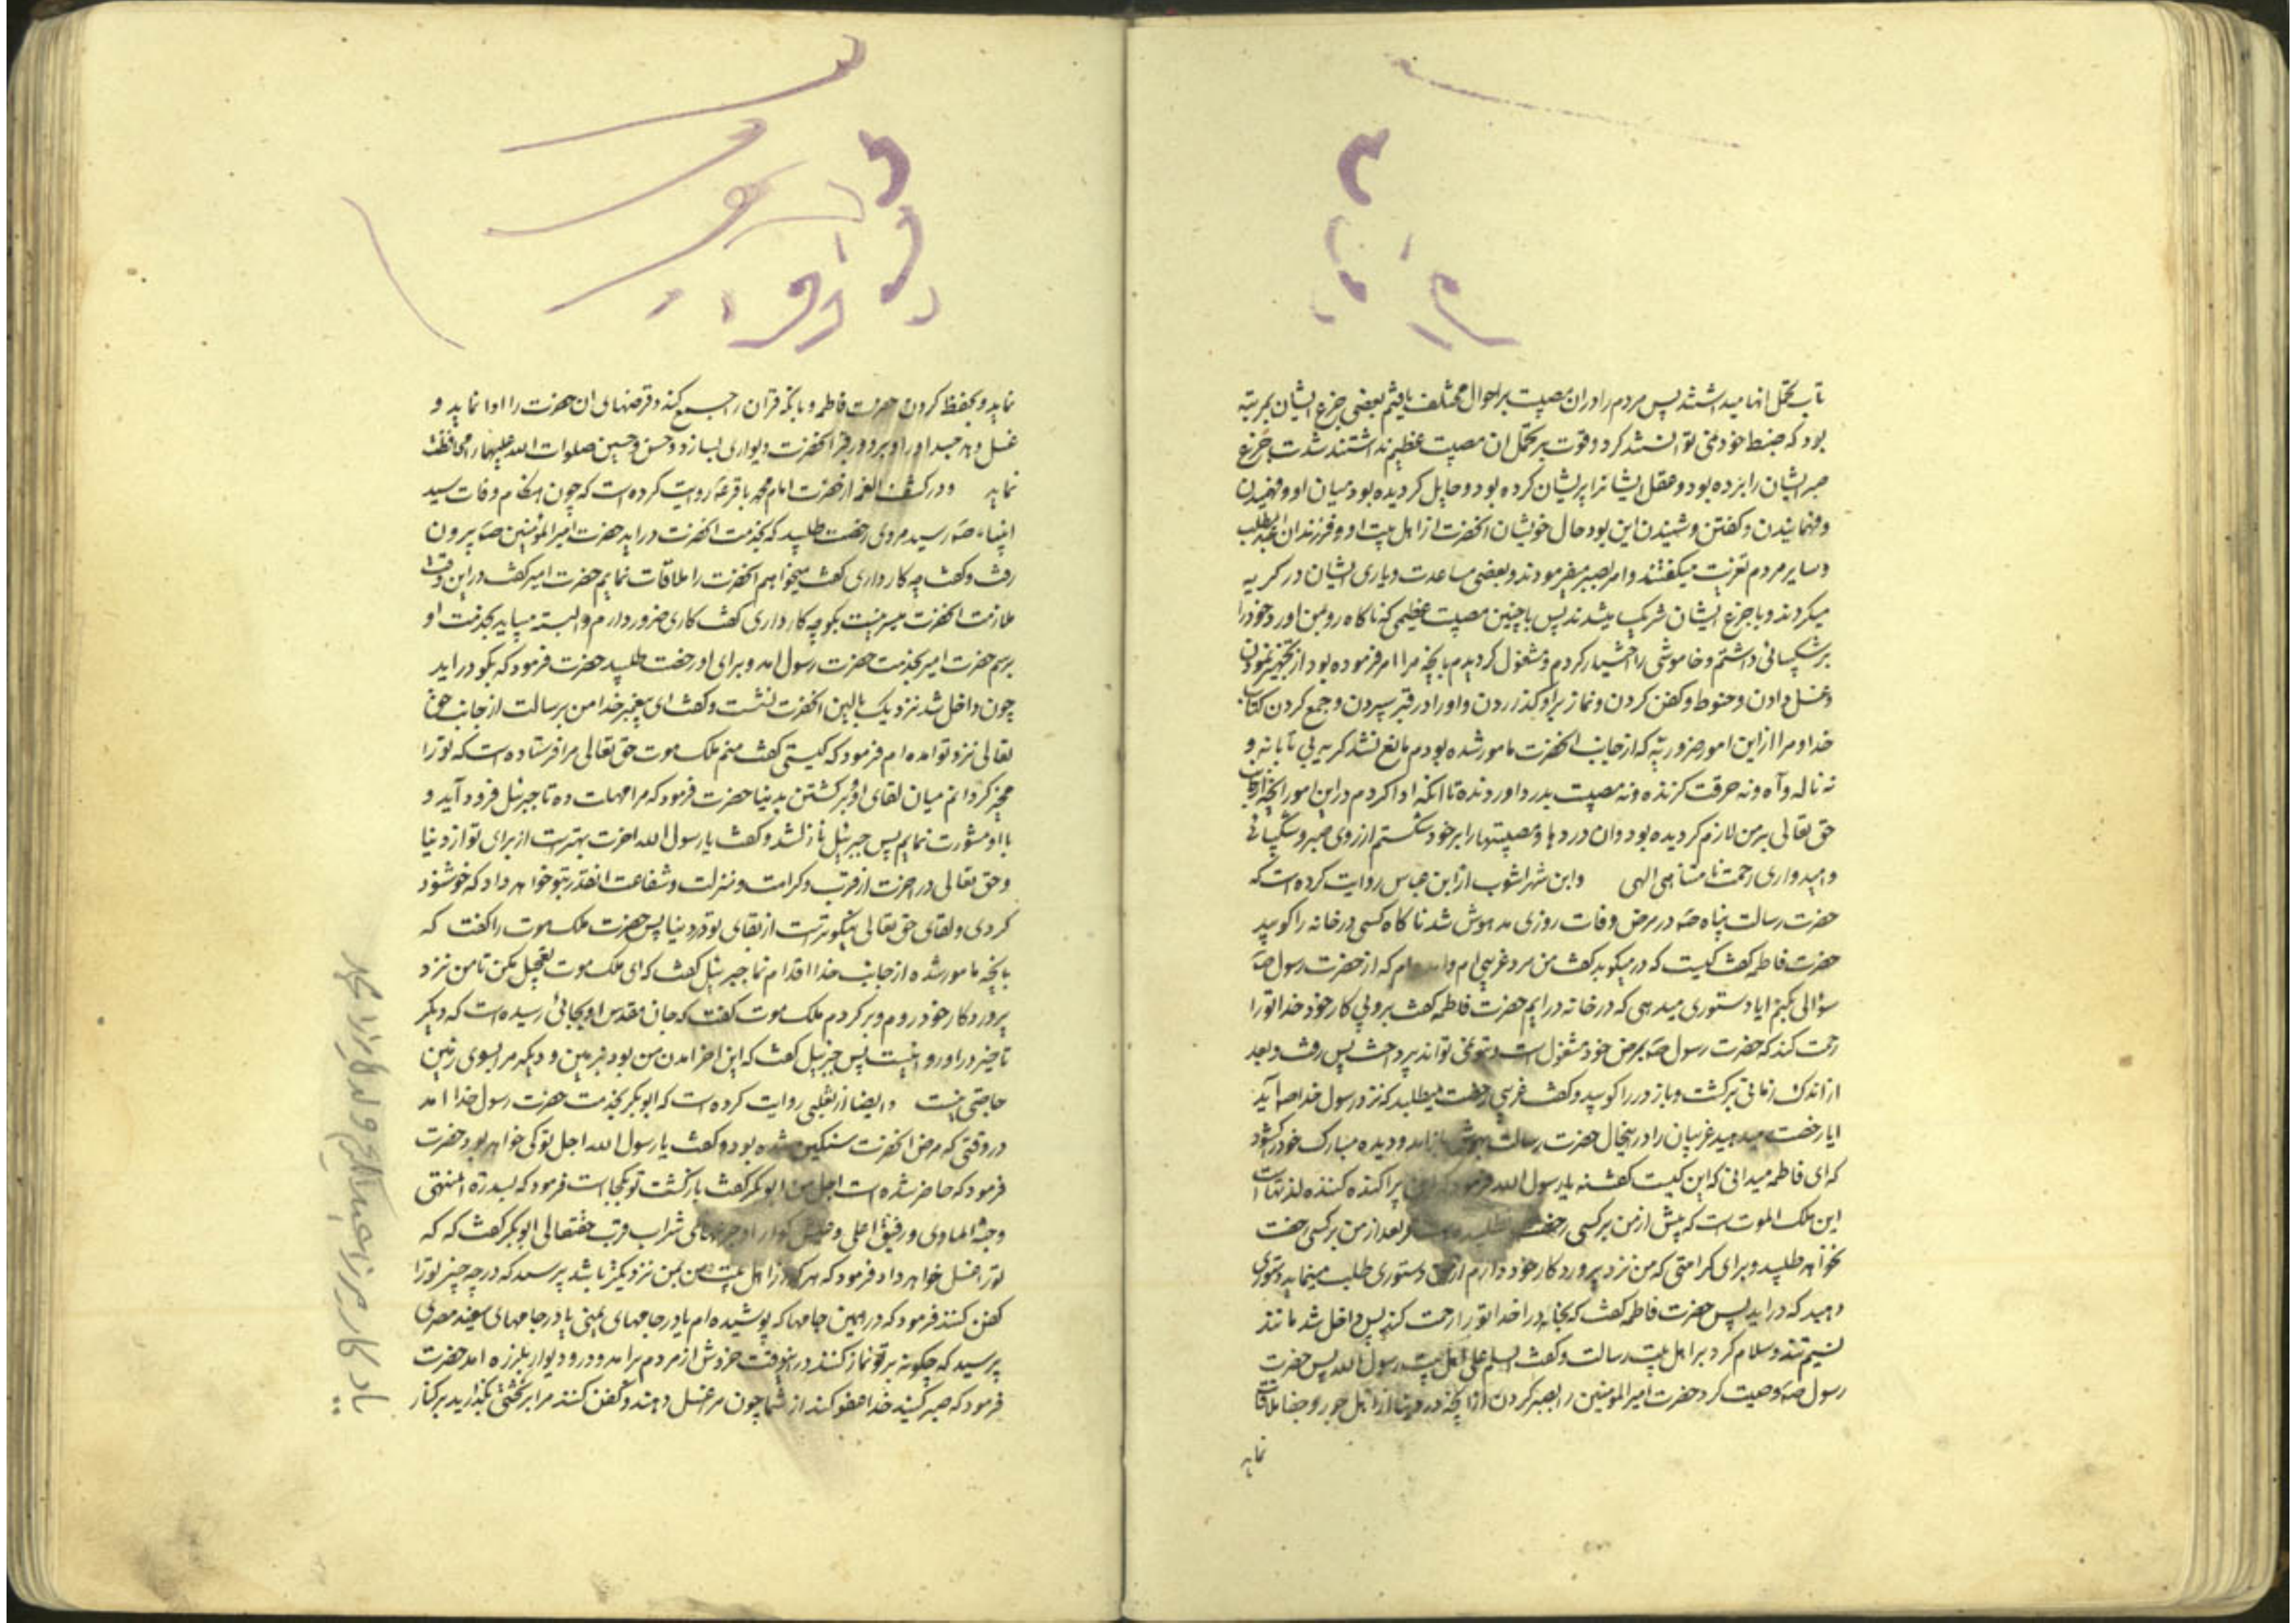 تاب تحمل انها میداشتند پس مردم را در ان مصیبت بر احوال مختلف یافتم بعضی جزع ایشان بمرتبه
بود که ضبط خود نمی توانستند کرد و قوت بر تحمل ان مصیبت عظیم نداشتند شدت جزع
صبر ایشان را برده بود و عقل ایشانرا پریشان کرده بود و حایل کردیده بود میان او و فهمیدن
و فهمانیدن و کفتن و شنیدن این بود حال خویشان انحضرت از اهل بیت او و فرزندان عبدالمطلب
و سایر مردم تعزیت میکفتند و امر بصبر میفرمودند و بعضی مساعدت و یاری ایشان در کریه
میکردند و با جزع ایشان شریک میشدند پس با چنین مصیبت عظیمی که ناکاه رو بمن اورد خود را
بر شکیبائی داشتم و خاموشی را اختیار کردم و مشغول کردیدم بانچه مرا امر فرموده بود از تجهیز نمودن
و غسل دادن و حنوط و کفن کردن و نماز بر او کذاردن و او را در قبر سپردن و جمع کردن کتاب
خدا و مرا از این امور ضروریه که از جانب انحضرت مامور شده بودم مانع نشد کریه بی تابانه و
نه ناله و آه و نه حرقت کزنده و نه مصیبت بدرد اورنده تا انکه ادا کردم در این امور انچه از جانب
حق تعالی بر من لازم کردیده بود و ان دردها و مصیبتها را بر خود شکستم از روی صبر و شکیبائی
و امیدواری رحمت نامتناهی الهی     و ابن شهراشوب از ابن عباس روایت کرده است که
حضرت رسالت پناه صه در مرض وفات روزی مدهوش شد ناکاه کسی در خانه را کوبید
حضرت فاطمه کفت کیست که در میکوبد کفت من مرد غریبی ام و امده ام که از حضرت رسول صه
سؤالی بکنم ایا دستوری میدهی که در خانه درایم حضرت فاطمه کفت برو پی کار خود خدا تو را
رحمت کند که حضرت رسول صه بمرض خود مشغول است و بتو نمی تواند پرداخت پس رفت و بعد
از اندک زمانی برکشت و باز در را کوبید و کفت غریبی رخصت میطلبد که نزد رسول خدا صه آید
ایا رخصت میدهید غریبان را در اینحال حضرت رسالت بهوش باز امد و دیده مبارک خود کشود
که ای فاطمه میدانی که این کیست کفت نه یا رسول الله فرمود که این پراکنده کننده لذتهاست
این ملک الموت است که پیش از من بر کسی رخصت نطلبیده است و بعد از من بر کسی رخصت
نخواهد طلبید و برای کرامتی که من نزد پرورد کار خود دارم از من دستوری طلب مینماید دستوری
دهید که دراید پس حضرت فاطمه کفت که بخانه درا خدا تو را رحمت کند پس داخل شد مانند
نسیم تند و سلام کرد بر اهل بیت رسالت و کفت السلم علی اهل بیت رسول الله پس حضرت
رسول صه وصیت کرد حضرت امیر المومنین را بصبر کردن از انچه در دنیا از اهل جور و جفا ملاقات
نماید
نماید و بحفظ کردن حضرت فاطمه و بانکه قرآن را جمع کند و قرضهای ان حضرت را ادا نماید و
غسل دهد جسد او را و بر دور قبر انحضرت دیواری بسازد و حسن و حسین صلوات الله علیهما را محافظت
نماید     و در کشف الغمه از حضرت امام محمد باقر عه روایت کرده است که چون هنکام وفات سید
انبیاء صه رسید مردی رخصت طلبید که بخدمت انحضرت دراید حضرت امیر المؤمنین صه بیرون
رفت و کفت چه کار داری کفت میخواهم انحضرت را ملاقات نمایم حضرت امیر کفت در این وقت
ملازمت انحضرت میسر نیست بکو چه کار داری کفت کاری ضرور دارم و البته میباید بخدمت او
برسم حضرت امیر بخدمت حضرت رسول امد و برای او رخصت طلبید حضرت فرمود که بکو دراید
چون داخل شد نزدیک بالین انحضرت نشست و کفت ای پیغمبر خدا من برسالت از جانب حق
تعالی نزد تو امده ام فرمود که کیستی کفت منم ملک موت حق تعالی مرا فرستاده است که تو را
مخیر کردانم میان لقای او و برکشتن بدنیا حضرت فرمود که مرا مهلت ده تا جبرئیل فرود آید و
با او مشورت نمایم پس جبرئیل نازل شد و کفت یا رسول الله اخرت بهتر است از برای تو از دنیا
و حق تعالی در اخرت از قرب و کرامت و منزلت و شفاعت انقدر بتو خواهد داد که خوشنود
کردی و لقای حق تعالی نیکوتر است از بقای تو در دنیا پس حضرت ملک موت را کفت که
بانچه مامور شده از جانب خدا اقدام نما جبرئیل کفت که ای ملک موت تعجیل مکن تا من نزد
پرورد کار خود روم و بر کردم ملک موت کفت که جان مقدس او بجائی رسیده است که دیکر
تاخیر در او روا نیست پس جبرئیل کفت که این اخر امدن من بود بزمین و دیکر مرا بسوی زمین
حاجتی نیست     و ایضا از ثعلبی روایت کرده است که ابوبکر بخدمت حضرت رسول خدا امد
در وقتی که مرض انحضرت سنکین شده بود و کفت یا رسول الله اجل تو کی خواهد بود حضرت
فرمود که حاضر شده است اجل من ابوبکر کفت بازکشت تو بکجا است فرمود که بسدرة المنتهی
و جنة الماوی و رفیق اعلی و عیش کوارا و جرعهای شراب قرب حقتعالی ابوبکر کفت که که
تو را غسل خواهد داد فرمود که هر که از اهل بیت من بمن نزدیکتر باشد پرسید که در چه چیز تو را
کفن کنند فرمود که در همین جامها که پوشیده ام یا در جامهای یمنی یا در جامهای سفید مصری
پرسید که چکونه بر تو نماز کنند در اینوقت خروش از مردم برامد و در و دیوار بلرزه امد حضرت
فرمود که صبر کنید خدا عفو کند از شما چون مرا غسل دهند و کفن کنند مرا بر تختی بکذارید بر کنار